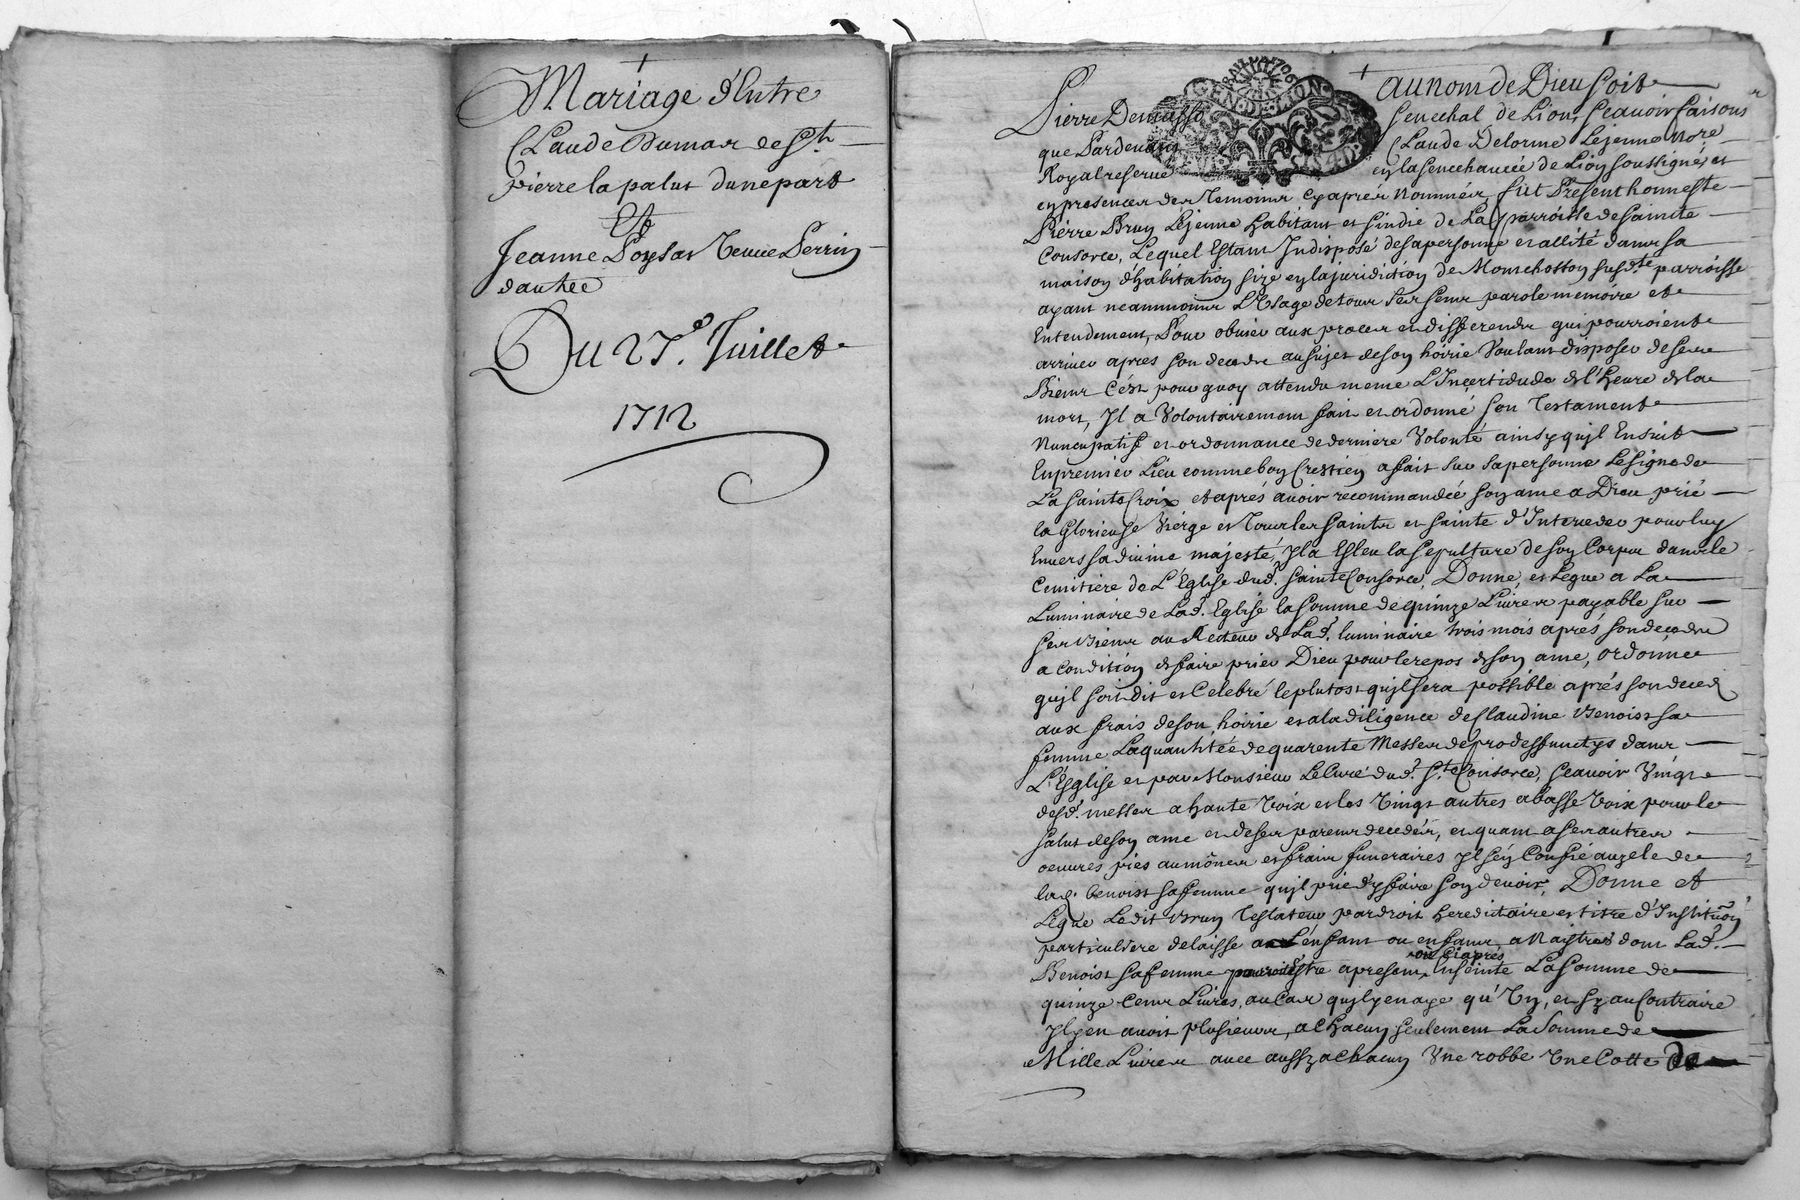 Mariage d'Entre
Claude Dumas de St
pierre la palus dunepart
Et
Jeanne Poysat veuve Perrin
dautre
Du 27e. Juillet
1712
GEN. DE LION
Au nom de Dieu soit
Pierre Demasso Senechal de Lion, Scauoir faisons
que Pardeuant Claude Delorme Lejeune Nore
Royal reserué en la senechaucée de Lion soussigné et
en presences des Temoins cy apres Nommés, fut Present honneste
Pierre Brun Lejeune habitant et sindic de La parroisse de sainte
Consorce, Lequel Estant Indisposé de sa personne et allité dans sa
maison d'habitation size en la juridiction de Montchotton susdte parroisse
ayant neantmoins L'Usage de tous ses sens parole memoire et
Entendement, Pour obuier aux proces et differends qui pourroient
arriuer apres son deceds au sujet de son hoirie Voulant disposer de ses
Biens C'est pourquoy attendu meme L'Incertidude de l'heure de la
mort, Il a Volontairement fait et ordonné son Testament
Nuncupatif et ordonnance de derniere Volonté ainsy qu'jl Ensuit
En premier Lieu comme bon Crestien a fait sur sa personne Le signe de
La Sainte Croix et aprés auoir recommandée son ame a Dieu prié
la Glorieuse Vierge et Tous les saints et sainte d'Interceder pour luy
Enuers sa diuine majesté, Jl a Esleu la sepulture de son Corps dans le
Cemitiere de L'Eglise dud. Sainte Consorce, Donne, et Legue a La
Luminaire de Lad. Eglise la somme de quinze Liures payable sur
ses Biens au Recteur de Lad. luminaire trois mois aprés son deceds
a condition de faire prier Dieu pour le repos de son ame, ordonne
qu'jl soit dit et Celebré le plutost qu'jl sera possible aprés son deced
aux frais de son hoirie et a la diligence de Claudine Benoist sa
femme La quantitée de quarente Messes de pro deffunctys dans
L'Eglise et par Monsieur Le Curé dud. Ste Consorce, Scauoir Vingt
desd. messes a haute Voix et les Vingt autres a basse Voix pour le
salut de son ame et de ses parents decedés, et quant a ses autres
oeuures pies aumônes et frais funeraires Jl s'en Confie au zele de
lad. Benoist sa femme qu'jl prie d'y faire son deuoir, Donne et
Legue Ledit Brun Testateur par droit hereditaire et titre d'Instituon
particuliere delaisse a L'enfant ou enfants a Naistres dont Lad.
ou Ciapres
Benoist sa femme pourroit Estre apresent Enseinte La Somme de
quinze Cent Liures, au Cas qu'jl y en aye qu'Un, et sy au Contraire
Jl y en auoit plusieurs, a chacun seulement La Somme de
Mille Liures auec aussy a chacun Une robbe Une Cotte de